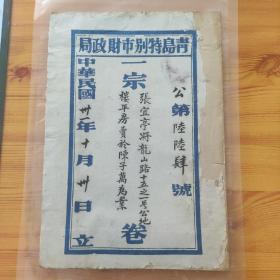 青島特別市財政局
公第陸陸肆號
一宗
張宜亭將龍山路十五之一号公地
樓平房賣於陳子萬為業
卷
中華民國卅年十月卅日立